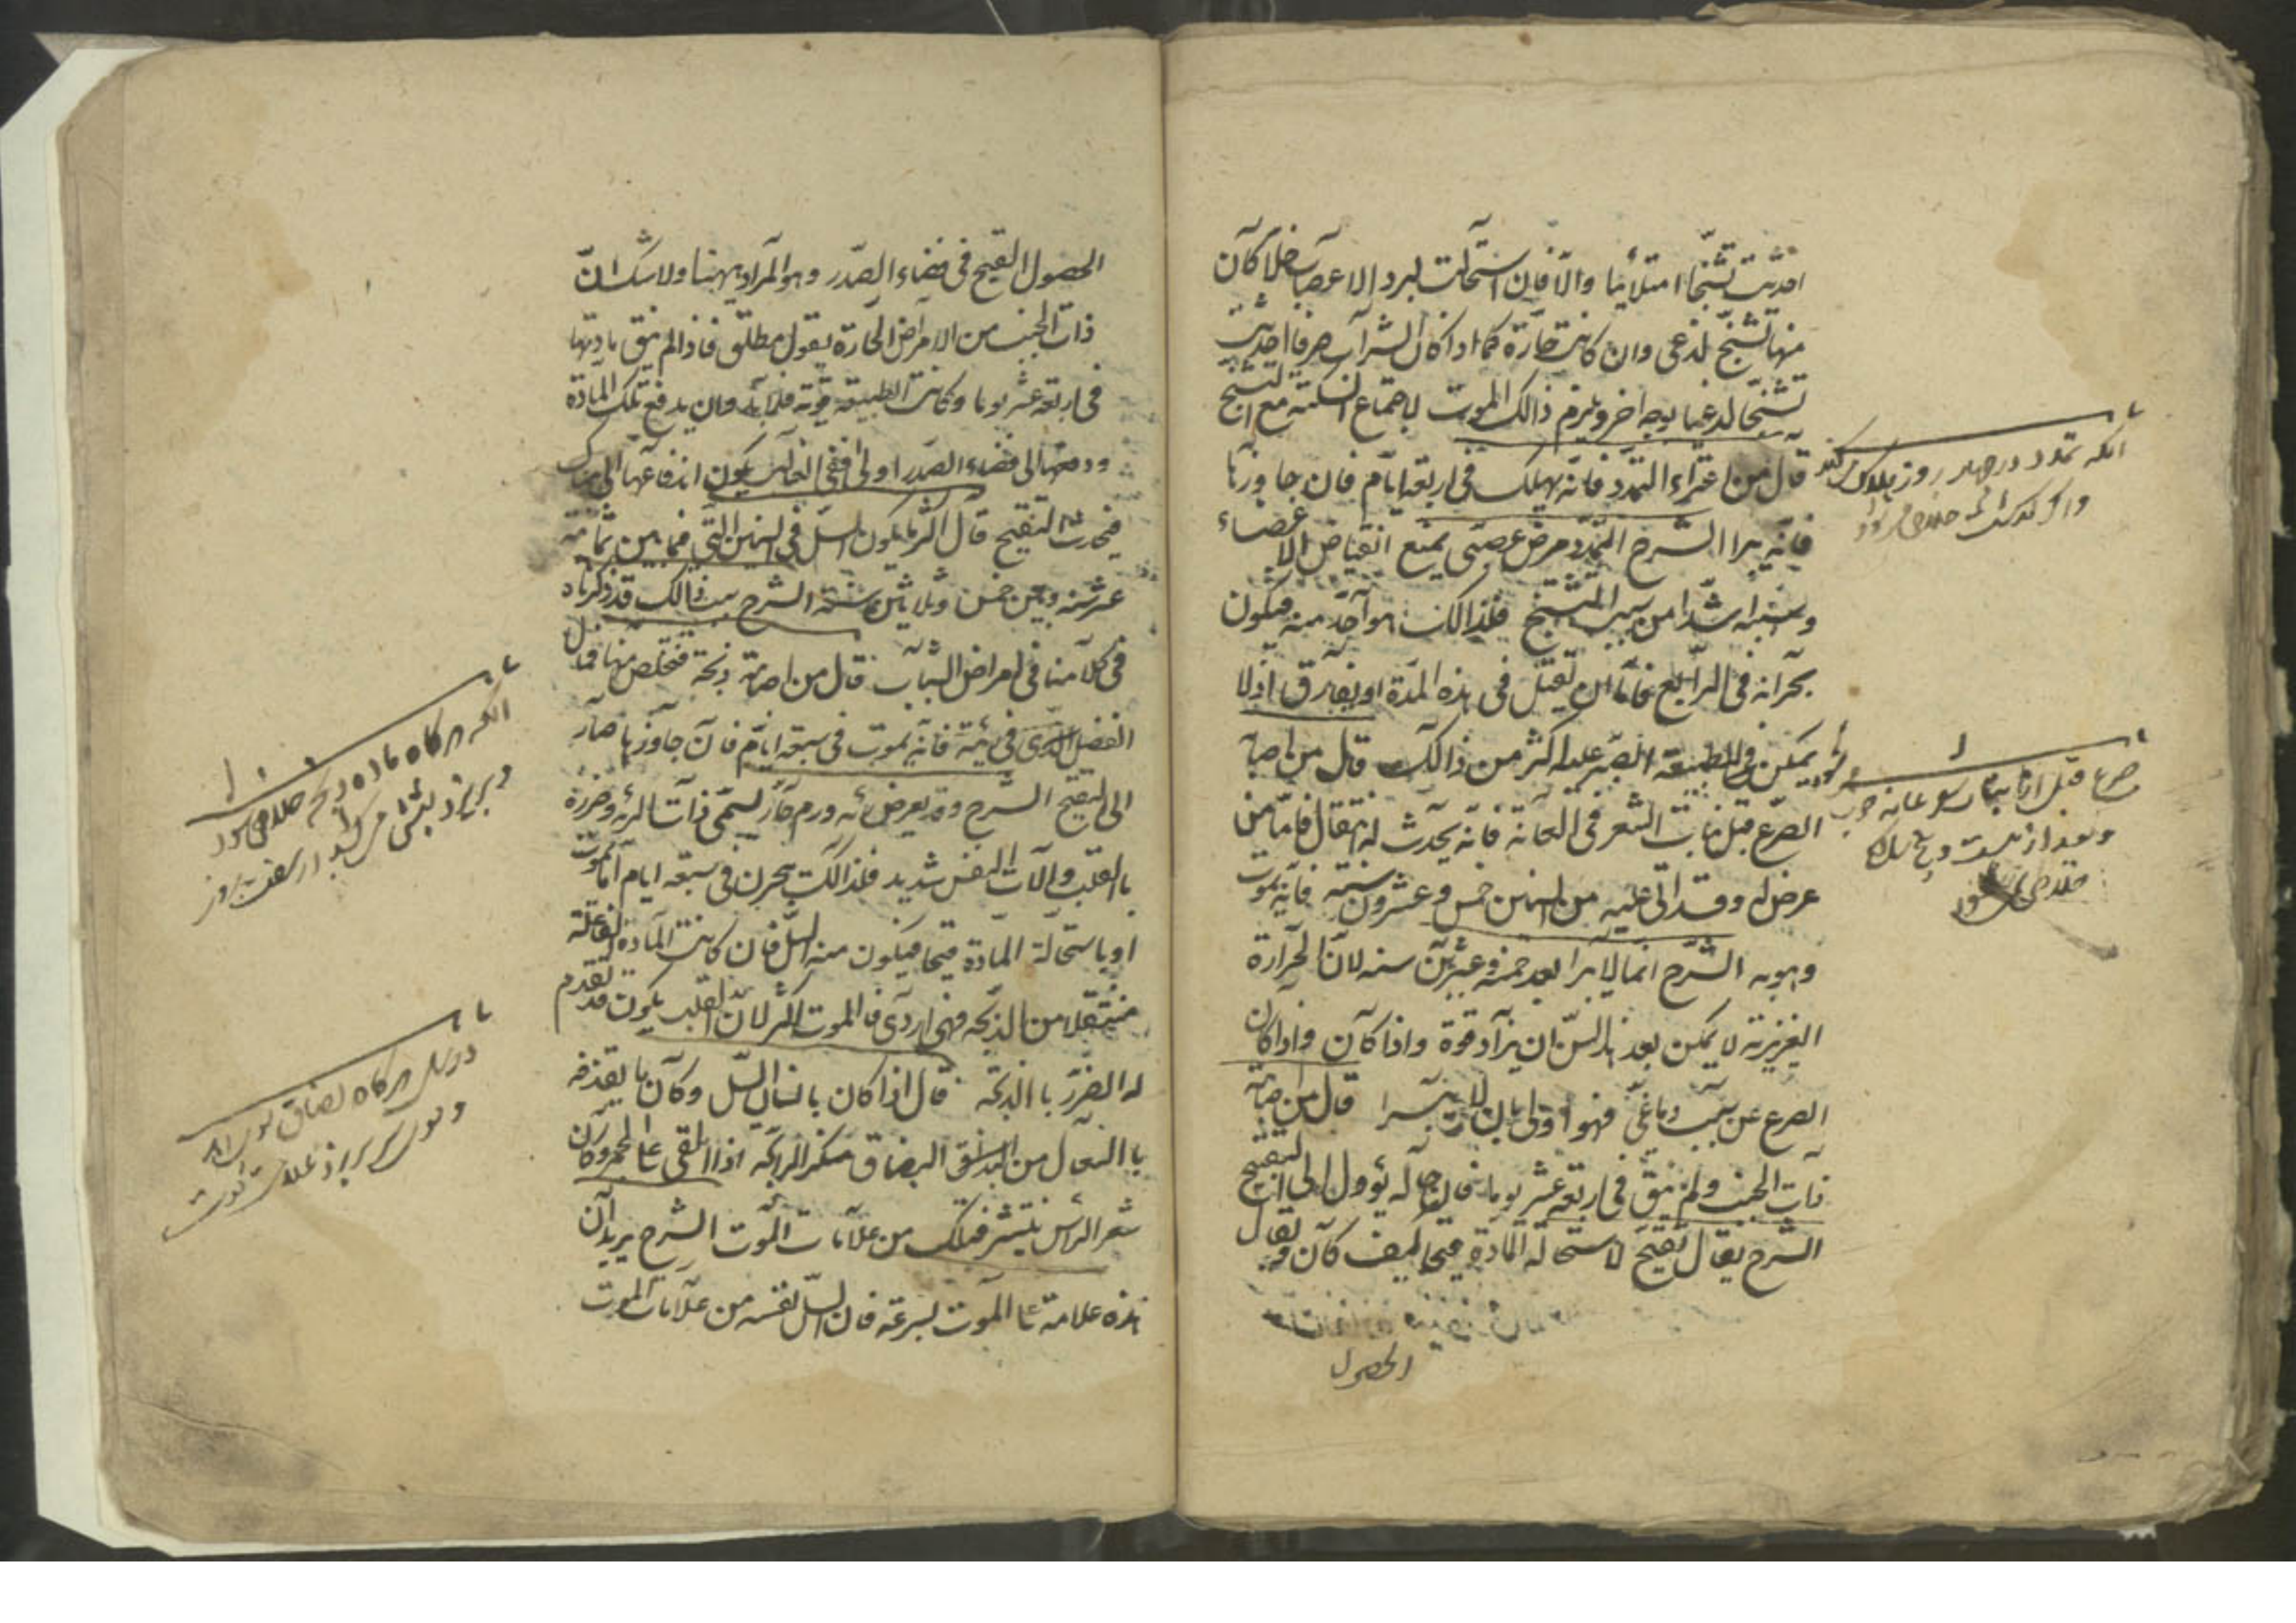 احدثت تشنجا امتلائيا والا فان استحالت لبرد الاعصاب خلا كان
منها تشنج لذعى وان كانت حارة كما اذا كان الشراب صرفا احدثت
تشنجا لذعيا بوجه اخر ويلزم ذالك الموت لاجتماع السكتة مع التشنج
قال من اعتراه التمدد فانه يهلك فى اربعة ايام فان جاوزها
فانه يبرا الشرح التمدد مرض عصبى يمنع انقباض الاعضاء
وسببه اشد من سبب التشنج فلذالك هو احد منه فيكون
بحرانه فى الرابع فاما ان يقتل فى هذه المدة او يفارق اذ لا
يمكن للطبيعة الصبر عليه اكثر من ذالك قال من اصابه
الصرع قبل نبات الشعر فى العانة فانه يحدث له انتقال فاما من
عرض له وقد اتى عليه من السنين خمس وعشرون سنة فانه يموت
وهو به الشرح انما لا يبرا بعد خمسة وعشرين سنه لان الحرارة
الغريزية لا يمكن بعد هذا السن ان يزاد قوة واذا كان واذا كان
الصرع عن سبب دماغى فهو اولى بان لا يبرا قال من اصابه
ذات الجنب ولم ينق فى اربعة عشر يوما فان حاله يؤول الى التقيح
الشرح يقال تقيح لاستحالة المادة قيحا كيف كان ويقال
الحصول
انكه تمدد در چهار روز هلاك كند
واكر كذشت خلاص شود
صرع قبل از نبات موى عانه خوب
وبعد از بيست و پنج سال
خلاصى نشود
الحصول القيح فى فضاء الصدر وهو المراد ههنا ولا شك ان
ذات الجنب من الامراض الحارة بقول مطلق فاذا لم ينق مادتها
فى اربعة عشر يوما وكانت الطبيعة قوية فلا بد وان يدفع تلك المادة
ودفعها الى فضاء الصدر اولى ففى الغالب يكون اندفاعها الى هناك
فيحدث التقيح قال اكثر ما يكون السل فى السنين التى فيما بين ثمانية
عشر سنه وبين خمس وثلاثين سنة الشرح سبب ذالك قد ذكرناه
فى كلامنا فى امراض الشباب قال من اصابته ذبحة فتخلص منها فمال
الفضل الذى فى رئته فانه يموت فى سبعة ايام فان جاوزها صار
الى التقيح الشرح وقد يعرض للرئه ورم حار يسمى ذات الرئه وضرره
بالقلب والآلات النفس شديد فلذالك بحرن فى سبعه ايام اما بموت
او باستحالة المادة قيحا فيكون منه السل فان كانت المادة الفاعلة
منتقلا من الذبحه فهى اردى فالموت اكثر لان القلب يكون قد تقدم
له الضرر بالذبحه قال اذا كان بانسان السل وكان ما يقذفه
بالسعال من البصاق منكر الرائحه اذا القى على الجمر وكان
شعر الراس ينتشر فذلك من علامات الموت الشرح يريد ان
هذه علامة على الموت بسرعة فان السل نفسه من علامات الموت
انكه هركاه ماده ذبحه خلاص شود
و بريزد بشش در هفت روز
در سل هركاه بصاق